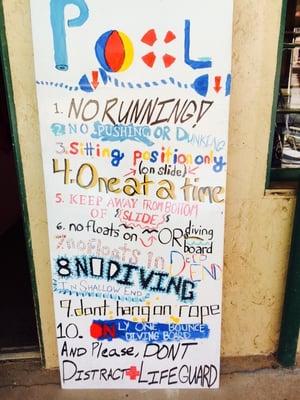 POOL
1. NO RUNNING!
2. NO PUSHING OR DUNKING
3. Sitting position only
(on slide)
4. One at a time
5. KEEP AWAY FROM BOTTOM
OF "SLIDE"
6. no floats on OR diving board
7. no floats in DEEP END
8 NO DIVING
IN SHALLOW END
9. dont hang on rope
10. ONLY ONE BOUNCE
DIVING BOARD
AND PLEASE, DONT
DISTRACT LIFEGUARD